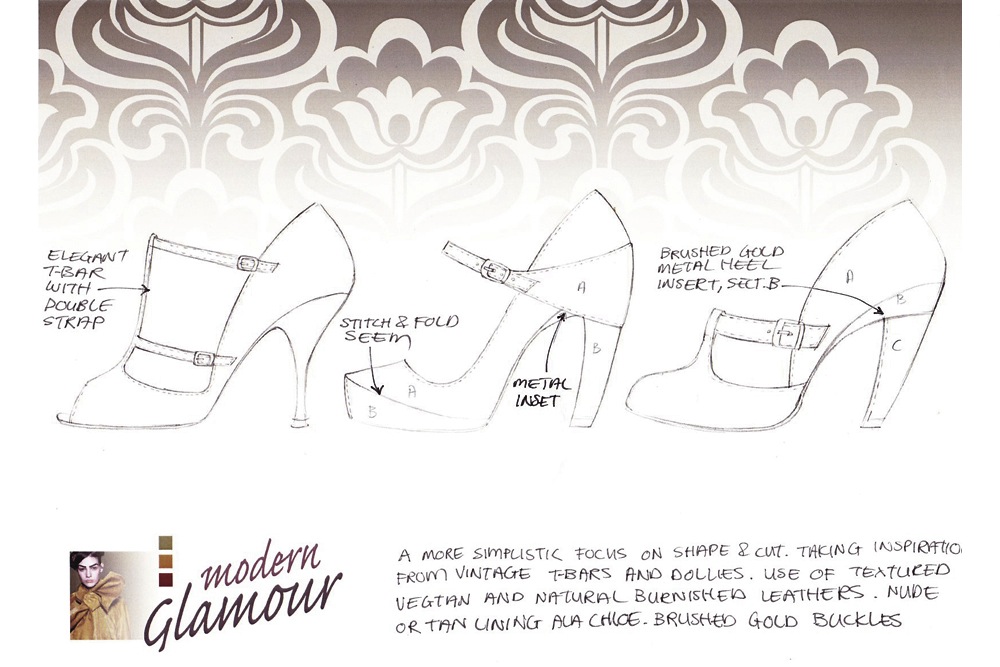 ELEGANT
T-BAR
WITH
DOUBLE
STRAP
STITCH & FOLD
SEEM
A
B
METAL
INSET
A
B
BRUSHED GOLD
METAL HEEL
INSERT, SECT.B
A
B
C
modern
Glamour
A MORE SIMPLISTIC FOCUS ON SHAPE & CUT. TAKING INSPIRATIO
FROM VINTAGE T-BARS AND DOLLIES. USE OF TEXTURED
VEGTAN AND NATURAL BURNISHED LEATHERS. NUDE
OR TAN LINING ALA CHLOE. BRUSHED GOLD BUCKLES